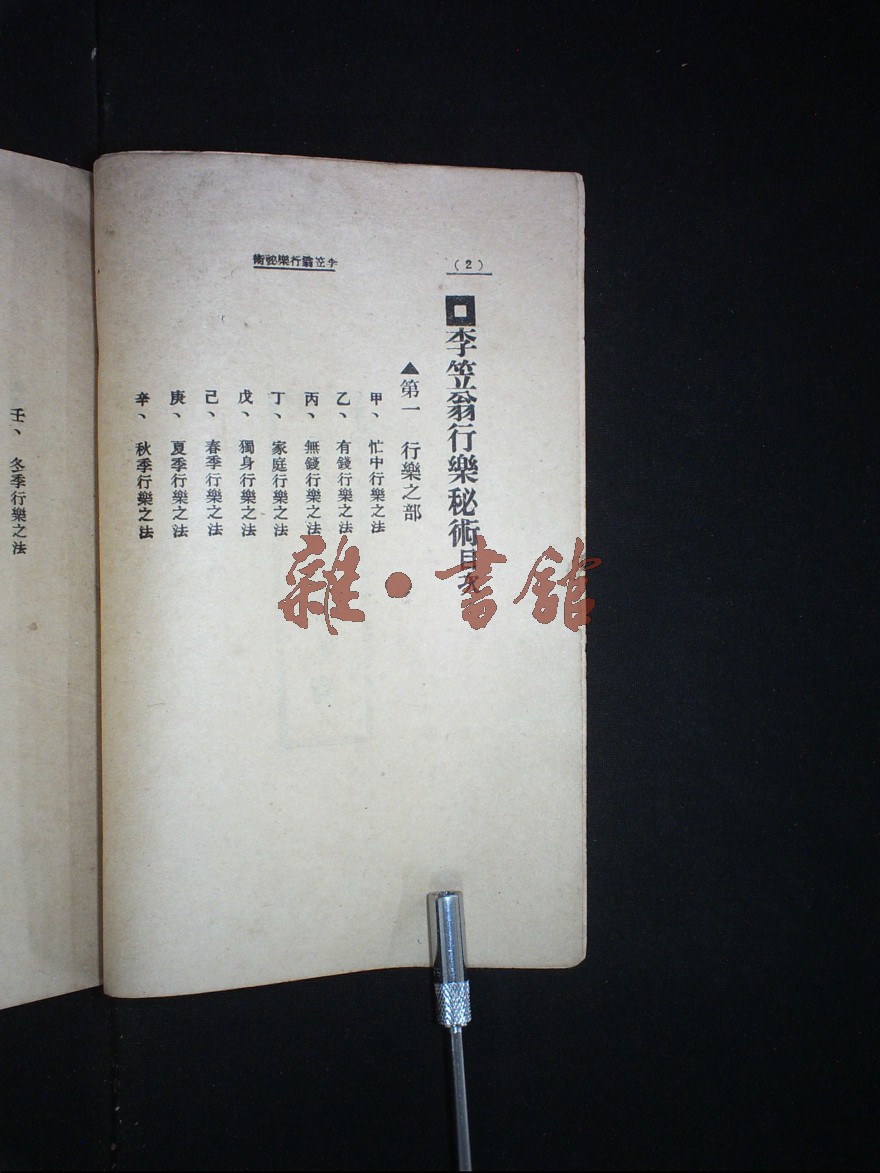 (2)
李笠翁行樂秘術
李笠翁行樂秘術目次
▲第一 行樂之部
甲、忙中行樂之法
乙、有錢行樂之法
丙、無錢行樂之法
丁、家庭行樂之法
戊、獨身行樂之法
己、春季行樂之法
庚、夏季行樂之法
辛、秋季行樂之法
壬、冬季行樂之法
雜·書館